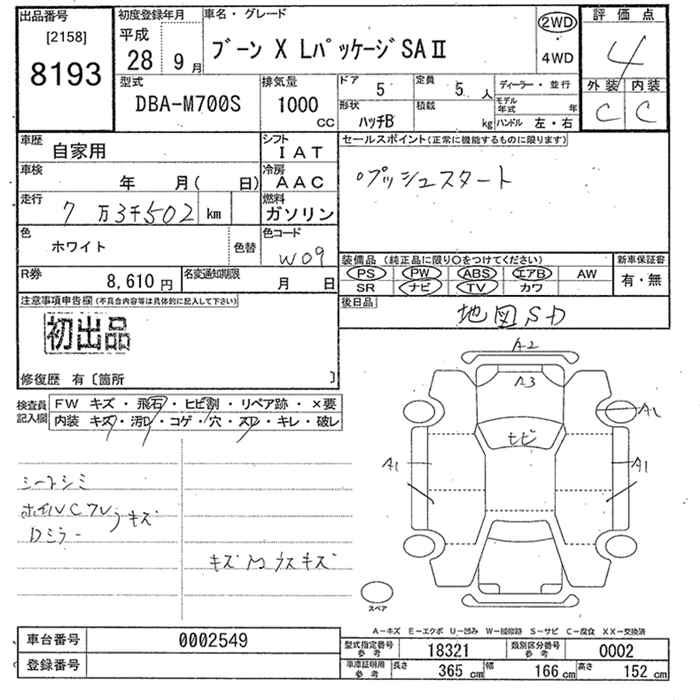 出品番号
[2158]
8193
初度登録年月
平成
28年 9月
車名・グレード
ブーン X LパッケージSAⅡ
2WD
4WD
評価点
4
外装 内装
C C
型式
DBA-M700S
排気量
1000 CC
ドア
5
定員
5 人
形状
ハッチB
積載
kg
ディーラー・並行
モデル年式 年
ハンドル 左・右
車歴
自家用
シフト
IAT
車検
年 月( 日)
冷房
AAC
走行
7万3千502 km
燃料
ガソリン
色
ホワイト
色替
色コード
W09
R券
8,610 円
名変通知期限
月 日
セールスポイント(正常に機能するものに限ります)
プッシュスタート
装備品 (純正品に限り○をつけてください)
PS PW ABS エアB AW
SR ナビ TV カワ
新車保証書
有・無
後日品
地図SD
注意事項申告欄(不具合内容等は具体的に記入して下さい)
初出品
修復歴 有〔箇所 〕
検査員記入欄
FW キズ・飛石・ヒビ割・リペア跡・×要
内装 キズ・汚レ・コゲ・穴・スレ・キレ・破レ
シートシミ
キズ
Dミラー
A2
A3
ヒビ
A1
A1
A1
スペア
A-キズ E-エクボ U-凹み W-補修跡 S-サビ C-腐食 XX-交換済
車台番号
0002549
登録番号
型式指定番号 参考
18321
類別区分番号 参考
0002
車庫証明用 参考
長さ 365 cm
幅 166 cm
高さ 152 cm